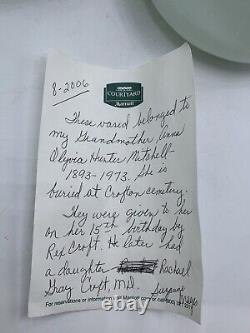 8-2006
COURTYARD
Marriott
These vases belonged to
my Grandmother Anna
Olyvia Hunter Mitchell-
1893-1973. She is
buried at Crofton cemetery.
They were given to her
on her 15th birthday by
Rex Croft. He later had
a daughter Rachael
Gray Croft, M.D.
Suzanne
For reservations or information
ebay